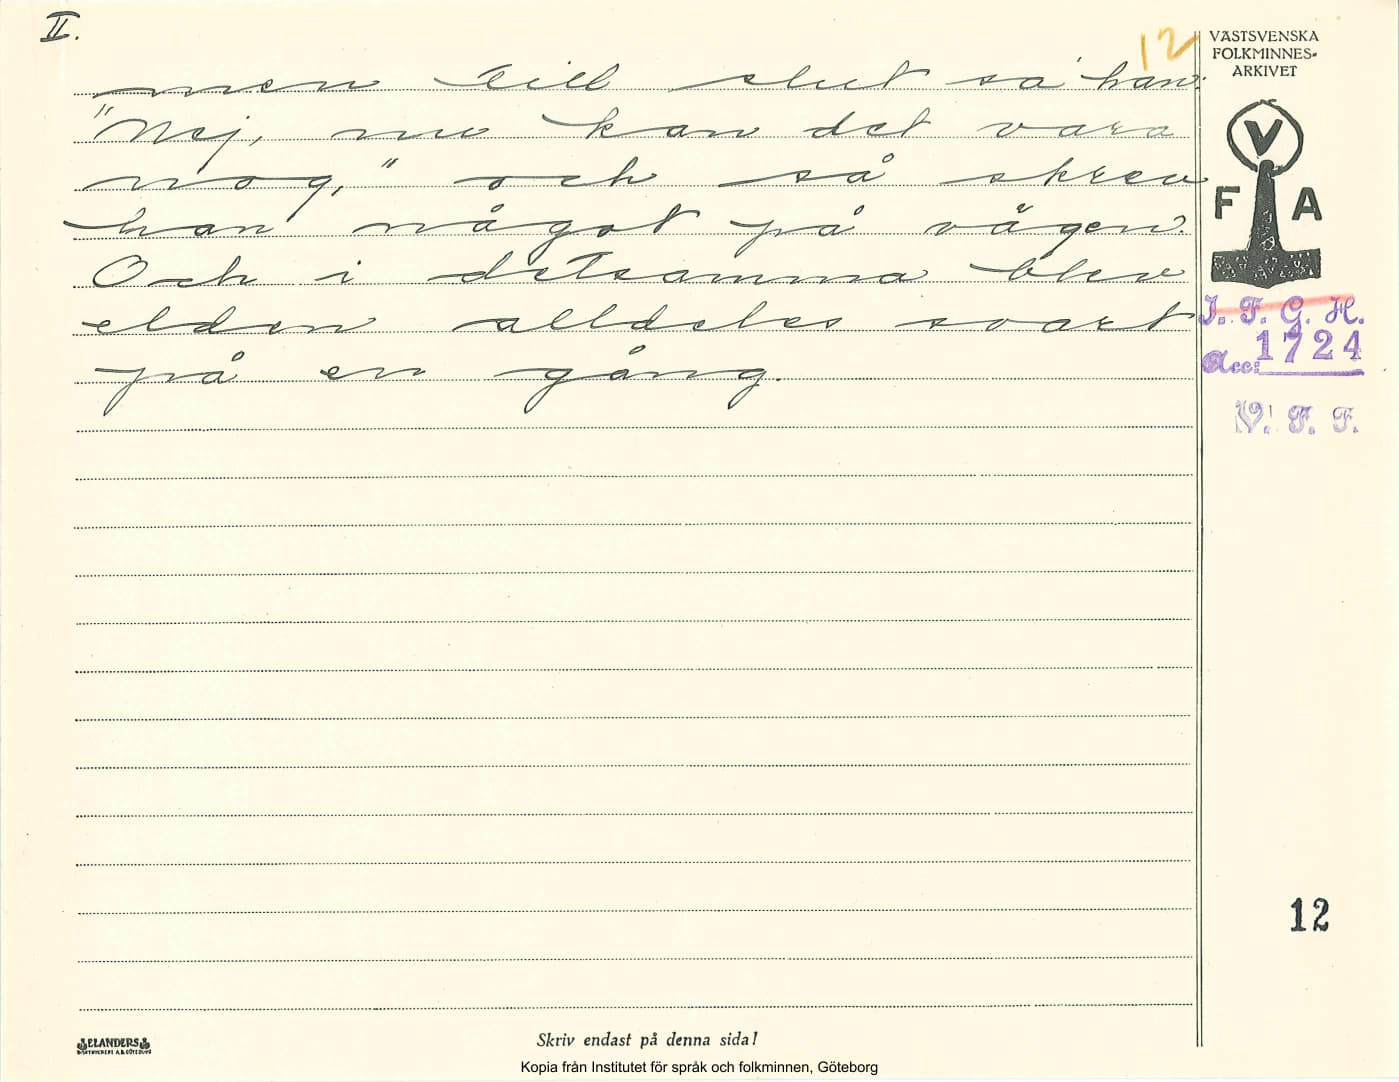 II.
12
VÄSTSVENSKA
FOLKMINNES-
ARKIVET
men till slut sa' han:
"Nej, nu kan det vara
nog," och så skrev
han något på vägen.
Och i detsamma blev
elden alldeles svart
på en gång.
V
F A
I. F. G. H.
Acc: 1724
V. F. F.
12
ELANDERS
BOKTRYCKERI A.B. GÖTEBORG
Skriv endast på denna sida!
Kopia från Institutet för språk och folkminnen, Göteborg